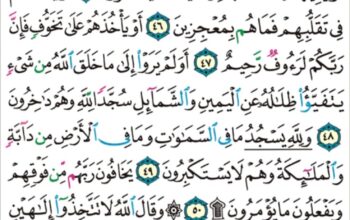 فِى تَقَلُّبِهِمْ فَمَا هُم بِمُعْجِزِينَ ٤٦ أَوْ يَأْخُذَهُمْ عَلَىٰ تَخَوُّفٍ فَإِنَّ
رَبَّكُمْ لَرَءُوفٌ رَّحِيمٌ ٤٧ أَوَلَمْ يَرَوْا۟ إِلَىٰ مَا خَلَقَ ٱللَّهُ مِن شَىْءٍ
يَتَفَيَّؤُا۟ ظِلَـٰلُهُۥ عَنِ ٱلْيَمِينِ وَٱلشَّمَآئِلِ سُجَّدًا لِّلَّهِ وَهُمْ دَٰخِرُونَ
٤٨ وَلِلَّهِ يَسْجُدُ مَا فِى ٱلسَّمَـٰوَٰتِ وَمَا فِى ٱلْأَرْضِ مِن دَآبَّةٍ
وَٱلْمَلَـٰٓئِكَةُ وَهُمْ لَا يَسْتَكْبِرُونَ ٤٩ يَخَافُونَ رَبَّهُم مِّن فَوْقِهِمْ
وَيَفْعَلُونَ مَا يُؤْمَرُونَ ۩ ٥٠ ۞ وَقَالَ ٱللَّهُ لَا تَتَّخِذُوٓا۟ إِلَـٰهَيْنِ